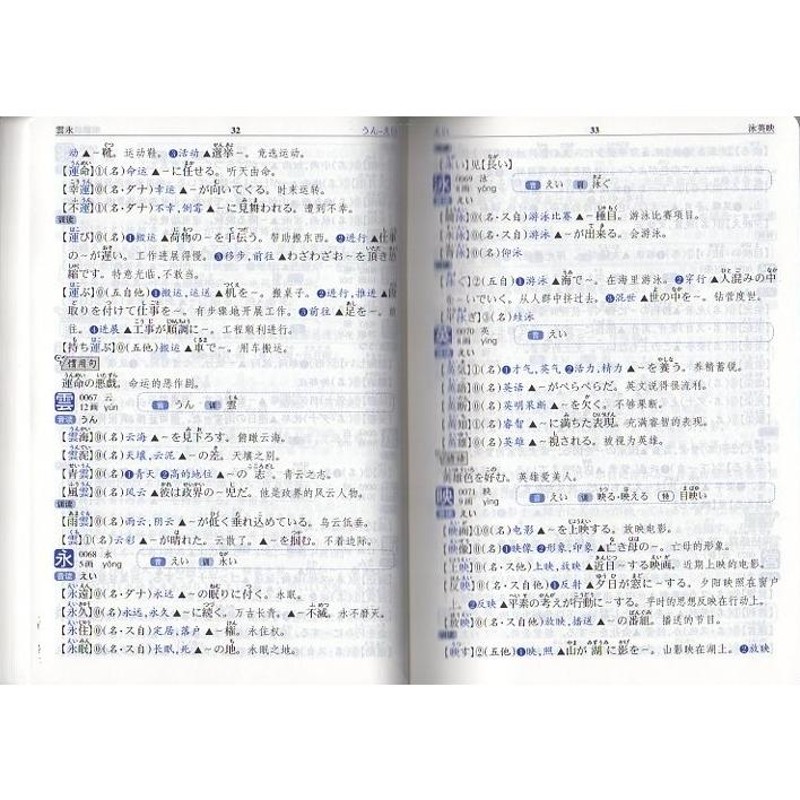 雲永
32
うん–えい
动 ▲~靴。运动鞋。❸活动 ▲選挙~。竞选运动。
【運命】①(名)命运 ▲~に任せる。听天由命。
【幸運】⓪(名・ダナ)幸运 ▲~が向いてくる。时来运转。
【不運】①(名・ダナ)不幸,倒霉 ▲~に見舞われる。遭到不幸。
训读
【運び】⓪(名)❶搬运 ▲荷物の~を手伝う。帮助搬东西。❷进行 ▲仕事
の~が遅い。工作进展得慢。❸移步,前往 ▲わざわざお~を頂き恐
縮です。特意光临,不敢当。
【運ぶ】⓪(五自他)❶搬运,运送 ▲机を~。搬桌子。❷进行,推进 ▲段
取りを付けて仕事を~。有步骤地开展工作。❸前往 ▲足を~。前
往。❹进展 ▲工事が順調に~。工程顺利进行。
【持ち運ぶ】⓪(五他)搬运 ▲車で~。用车搬运。
惯用句
運命の悪戯。命运的恶作剧。
雲 0067 云
12画 yún
音 うん 训 雲
音读 うん
【雲海】⓪(名)云海 ▲~を見下ろす。俯瞰云海。
【雲泥】⓪(名)天壤,云泥 ▲~の差。天壤之别。
【青雲】⓪(名)❶青天 ❷高的地位 ▲~の志。青云之志。
【風雲】⓪(名)风云 ▲彼は政界の~児だ。他是政界的风云人物。
训读
【雨雲】⓪(名)雨云,阴云 ▲~が低く垂れ込めている。乌云低垂。
【雲】①(名)云彩 ▲~が晴れた。云散了。▲~を掴む。不着边际。
永 0068 永
5画 yǒng
音 えい 训 永い
音读 えい
【永遠】⓪(名・ダナ)永远 ▲~の眠りに付く。永眠。
【永久】⓪(名)永远,永久 ▲~に続く。万古长青。▲~不滅。永不磨灭。
【永住】⓪(名・ス自)定居,落户 ▲~権。永住权。
【永眠】⓪(名・ス自)长眠,死 ▲~の地。永眠之地。
えい
33
泳英映
【永い】见【長い】
泳 0069 泳
8画 yǒng
音 えい 训 泳ぐ
えい
⓪(名・ス自)游泳比赛 ▲~種目。游泳比赛项目。
⓪(名・ス自)游泳 ▲~が出来る。会游泳。
【背泳】⓪(名)仰泳
【泳ぐ】②(五自)❶游泳 ▲海で~。在海里游泳。❷穿行 ▲人混みの中
を~いでいく。从人群中挤过去。❸混世 ▲世の中を~。钻营度世。
【平泳ぎ】③(名)蛙泳
英 0070 英
8画 yīng
音 えい
えい
【英気】①(名)❶才气,英气 ❷活力,精力 ▲~を養う。养精蓄锐。
【英語】⓪(名)英语 ▲~がぺらぺらだ。英文说得很流利。
【英断】⓪(名)英明果断 ▲~を欠く。不够果断。
【英知】①(名)睿智 ▲~に満ちた表現。充满睿智的表现。
【英雄】⓪(名)英雄 ▲~視される。被视为英雄。
英雄色を好む。英雄爱美人。
映 0071 映
9画 yìng
音 えい 训 映る・映える 特 目映い
えい
【映画】①⓪(名)电影 ▲~を上映する。放映电影。
【映像】⓪(名)❶映像 ❷形象,印象 ▲亡き母の~。亡母的形象。
【上映】⓪(名・ス他)上映,放映 ▲近日~する映画。近期上映的电影。
【反映】⓪(名・ス自他)❶反射 ▲夕日が窓に~する。夕阳映照在窗户
上。❷反映 ▲平素の考えが行動に~する。平时的思想反映在行动上。
【放映】⓪(名・ス自他)放映,播送 ▲~の番組。播送的节目。
【映す】②(五他)❶映,照 ▲山が湖に影を~。山影映在湖上。❷放映